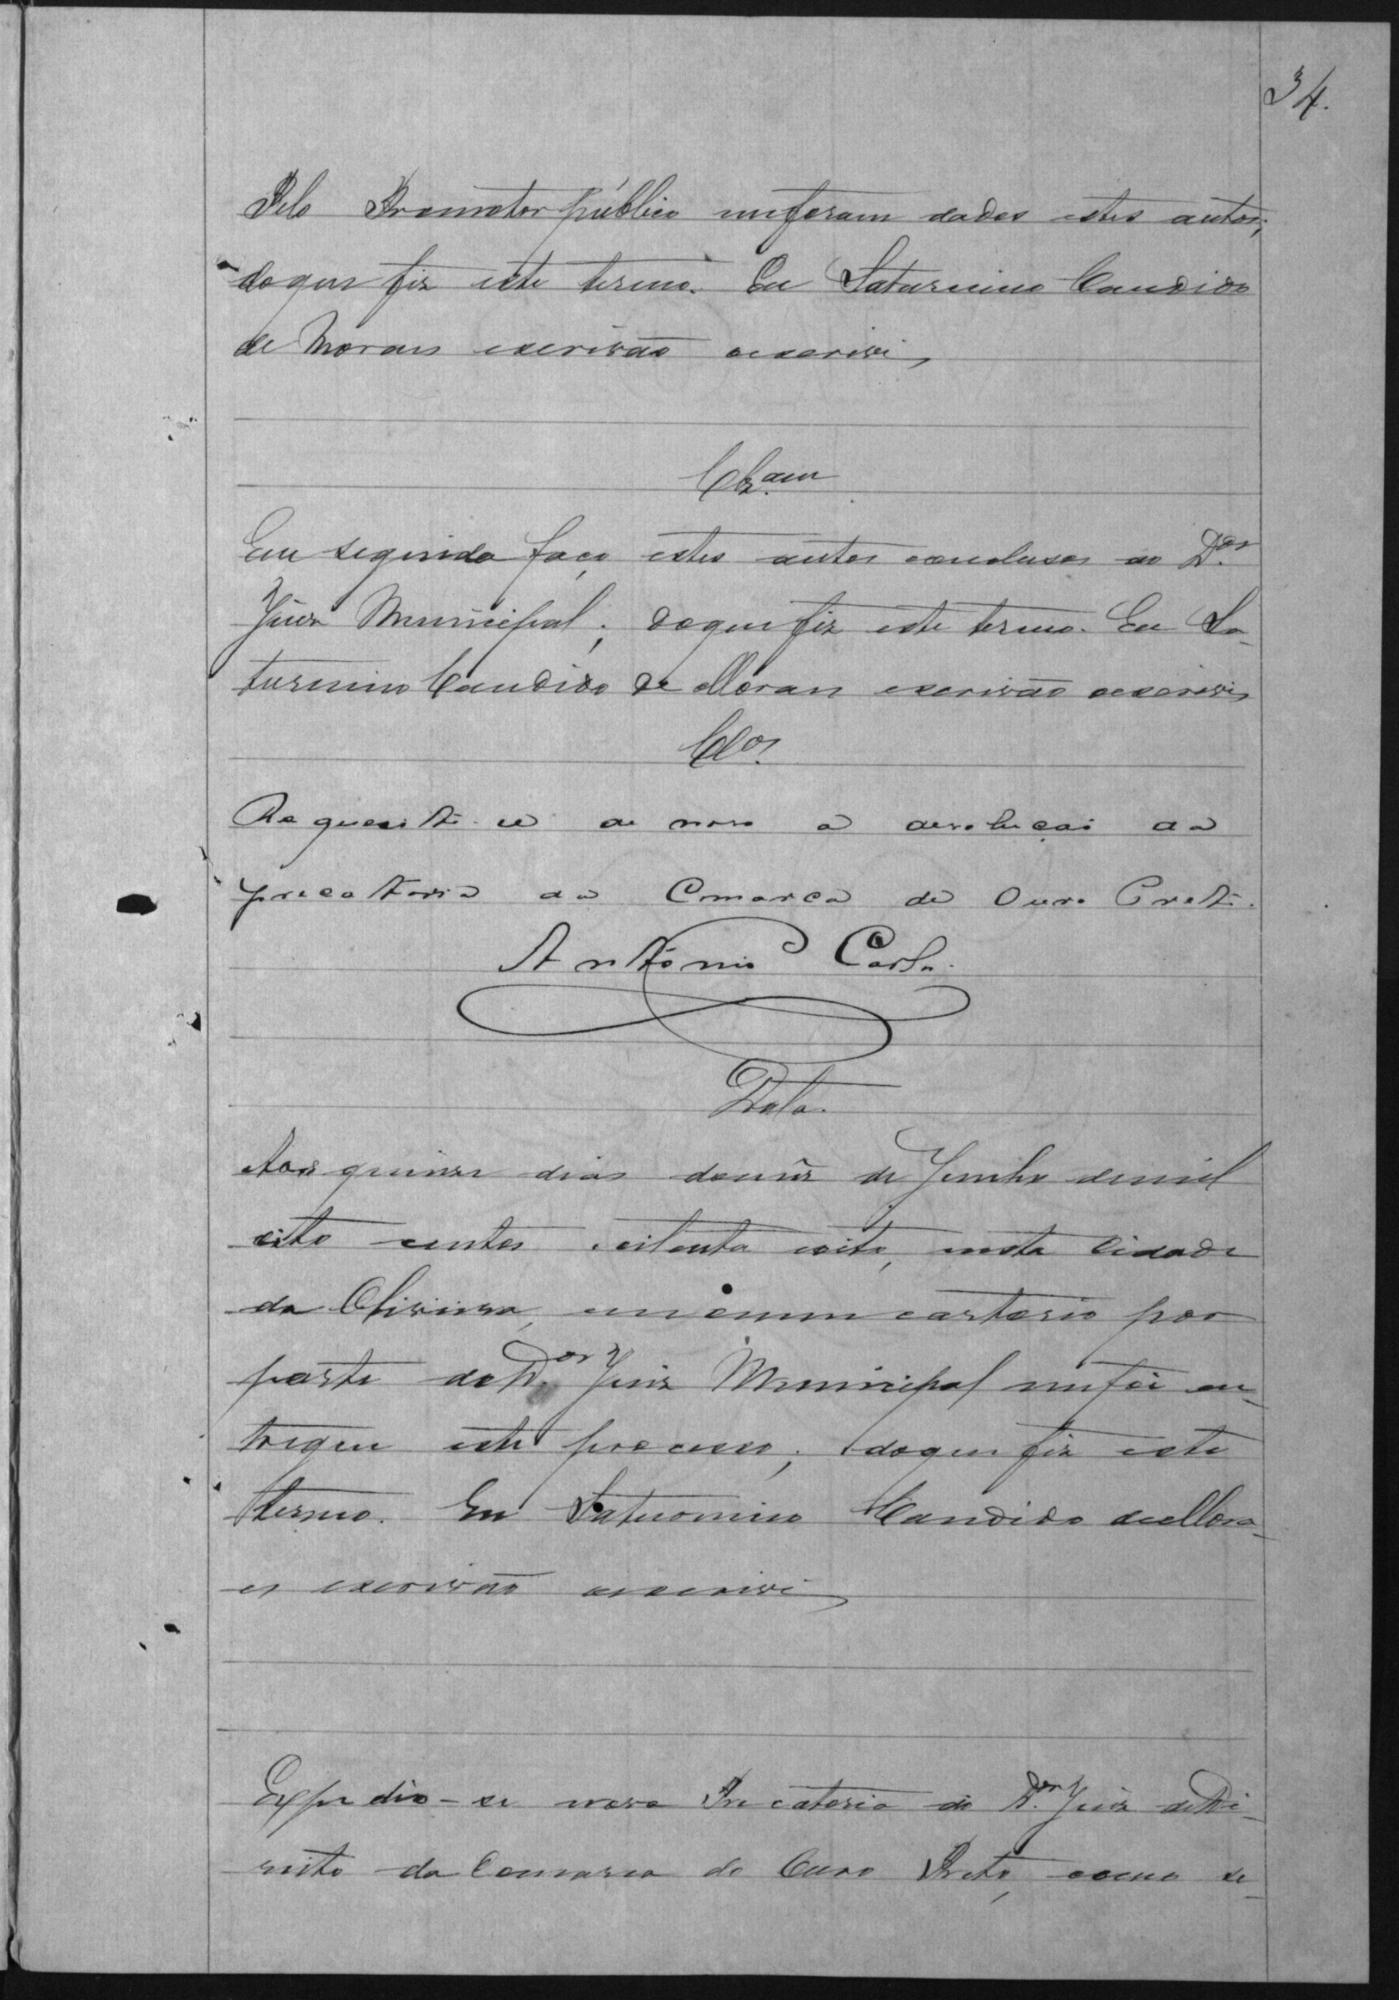 34.
Pelo Promotor público meforam dados estes autos;
doque fiz este termo. Eu Saturnino Candido
de Moraes escrivão oescrivi,
Clz.am
Em seguida faço estes autos conclusos ao D.or
Juiz Municipal; doque fiz este termo. Eu Sa-
turnino Candido de Moraes escrivão oescrivi,
Cl.os
Requesite-se de novo a devolução da
precatoria da Comarca de Ouro Preto.
Antonio Carlos.
Data.
Aos quinze dias domêz de Junho demil
oito centos oitenta eoito, nesta Cidade
da Oliveira, em omeu cartorio por
parte doD.or Juiz Municipal mefoi en-
tregue este processo; doque fiz este
termo. Eu Saturnino Candido deMora-
es escrivão oescrivi,
Expedio-se nova Precatoria ao D.or Juiz deDi-
reito da Comarca do Ouro Preto, como se-